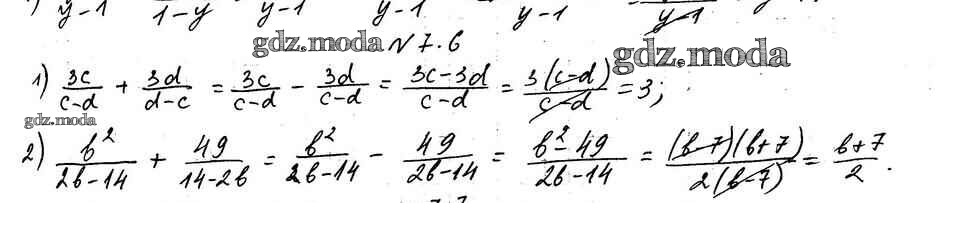 y-1 1-y y-1 y-1 y-1 y-1
gdz.moda N 7.6 gdz.moda
1) 3c/(c-d) + 3d/(d-c) = 3c/(c-d) - 3d/(c-d) = (3c-3d)/(c-d) = 3(c-d)/(c-d) = 3;
gdz.moda
2) b²/(2b-14) + 49/(14-2b) = b²/(2b-14) - 49/(2b-14) = (b²-49)/(2b-14) = (b-7)(b+7)/2(b-7) = (b+7)/2.